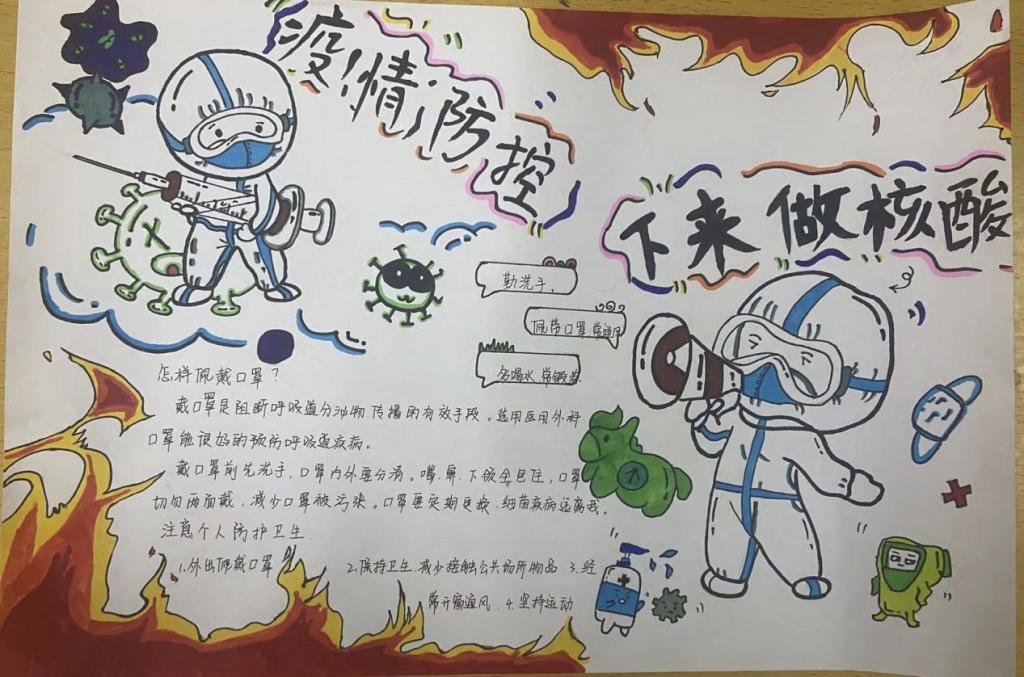 疫情防控
下来做核酸
勤洗手.
佩带口罩 常通风
多喝水 常锻炼
怎样佩戴口罩？
戴口罩是阻断呼吸道分泌物传播的有效手段。选用医用外科
口罩能很好的预防呼吸道疾病。
戴口罩前先洗手，口罩内外要分清。嘴、鼻、下颌全包住，口罩
切勿两面戴，减少口罩被污染。口罩要定期更换，细菌疾病远离我。
注意个人防护卫生
1.外出佩戴口罩 2.保持卫生 减少接触公共场所物品 3.经
常开窗通风. 4.坚持运动